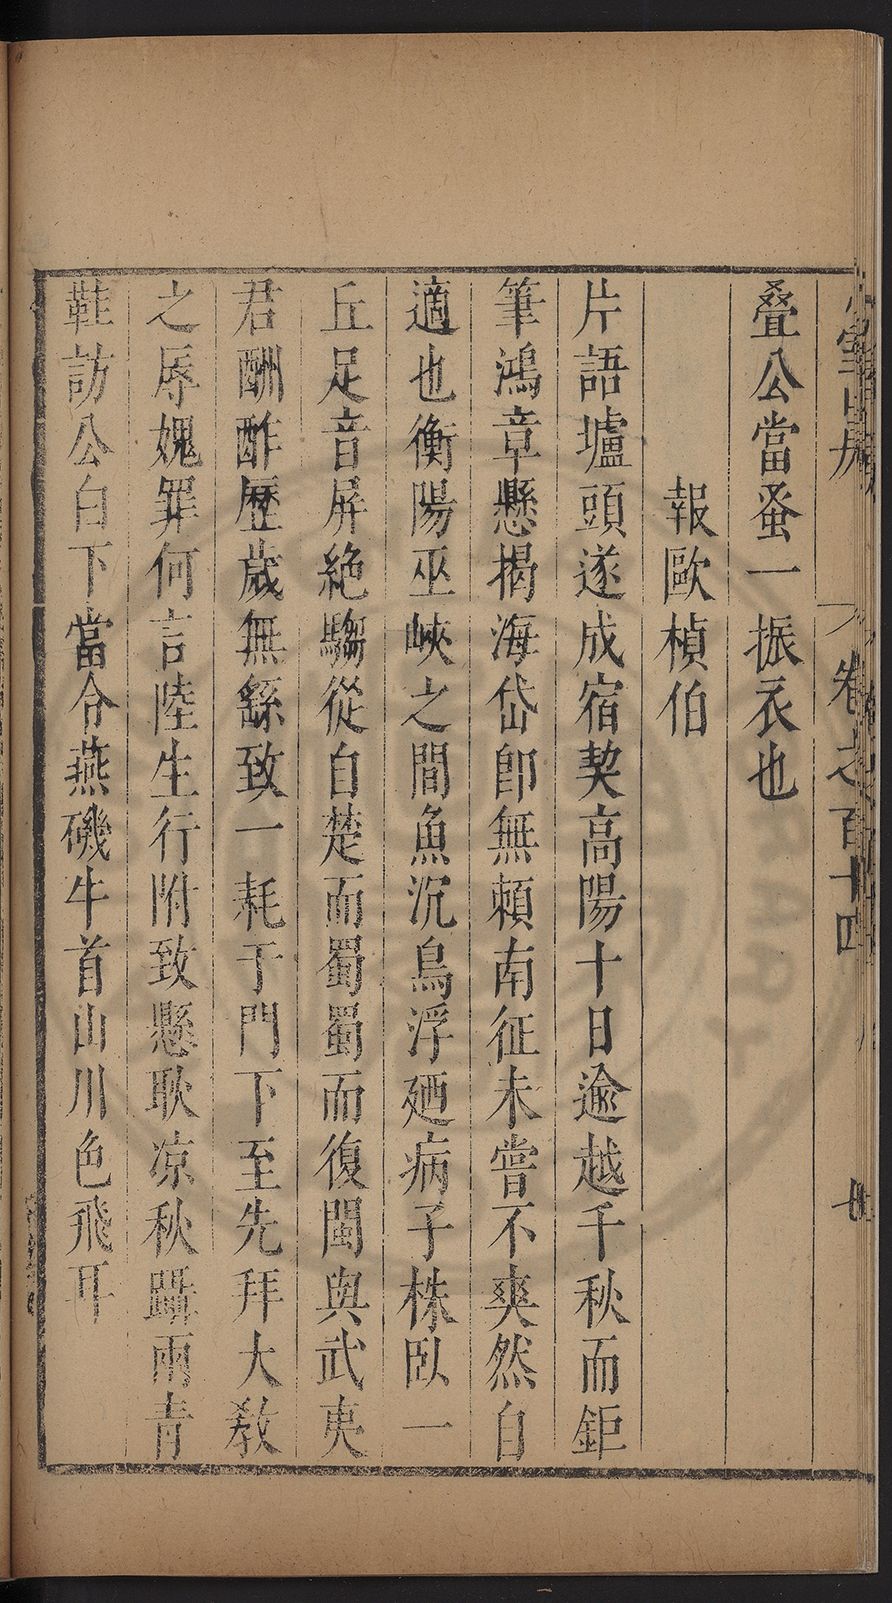 卷之百十四
疊公當蚤一振衣也
報歐楨伯
片語壚頭遂成宿契高陽十日逾越千秋而鉅
筆鴻章懸揭海岱卽無賴南征未嘗不爽然自
適也衡陽巫峽之間魚沉鳥浮廼病子株臥一
丘足音屏絶騶從自楚而蜀蜀而復閩與武夷
君酬酢歷歲無繇致一耗于門下至先拜大敎
之辱媿罪何言陸生行附致懸耿凉秋躡兩青
鞋訪公白下當令燕磯牛首山川色飛耳